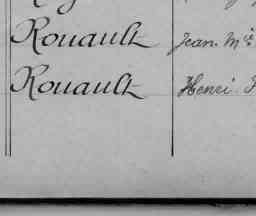 Rouault Jean. Mie
Rouault Henri